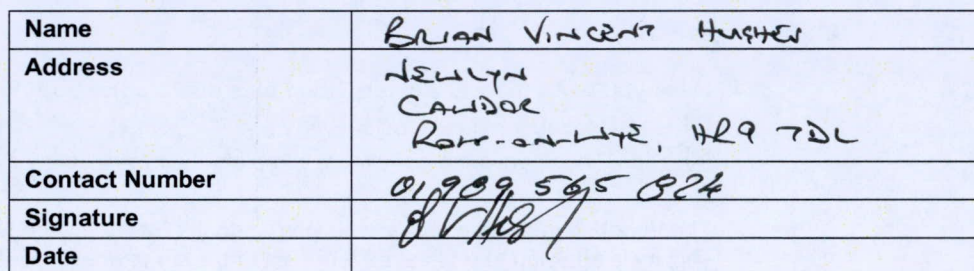 Name BRIAN VINCENT HUGHES
Address NEWLYN
CAWDOR
ROSS-ON-WYE, HR9 7DL
Contact Number 01909 565 824
Signature
Date